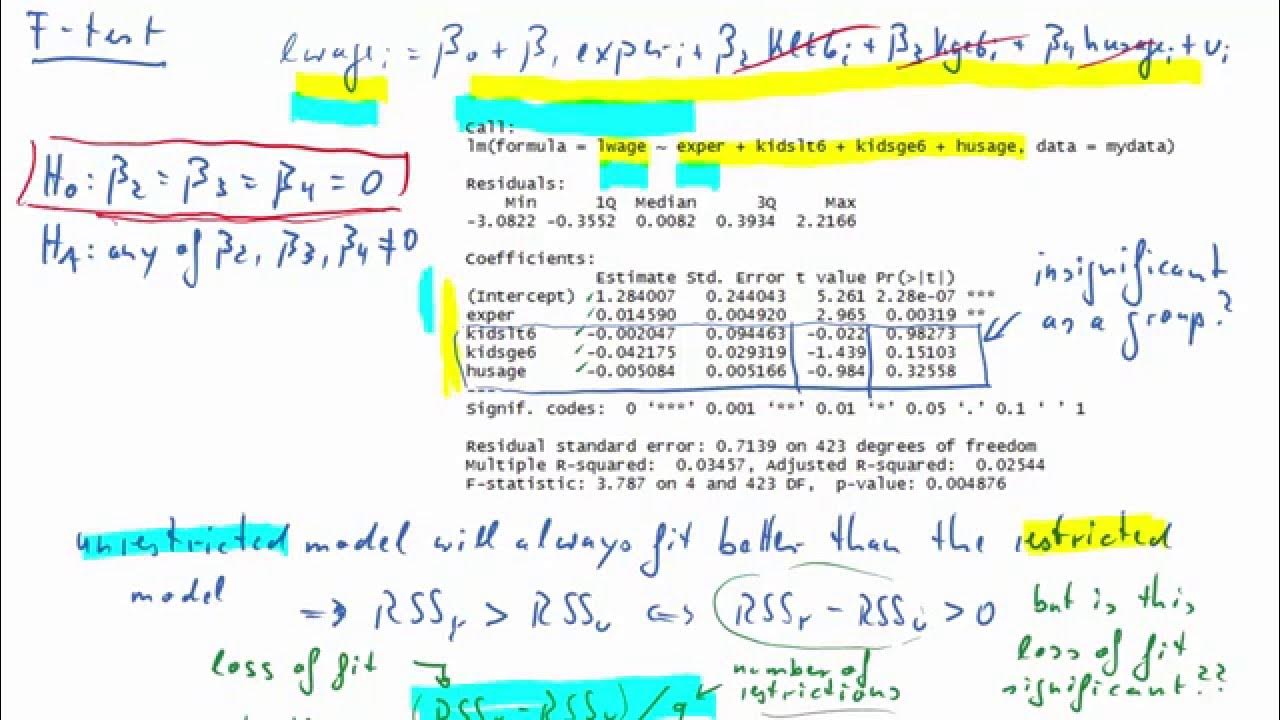 F-test
lwageᵢ = β₀ + β₁ experᵢ + β₂ klt6ᵢ + β₃ kge6ᵢ + β₄ husageᵢ + υᵢ
H₀: β₂ = β₃ = β₄ = 0
H_A: any of β₂, β₃, β₄ ≠ 0
Call:
lm(formula = lwage ~ exper + kidslt6 + kidsge6 + husage, data = mydata)
Residuals:
Min 1Q Median 3Q Max
-3.0822 -0.3552 0.0082 0.3934 2.2166
Coefficients:
Estimate Std. Error t value Pr(>|t|)
(Intercept) 1.284007 0.244043 5.261 2.28e-07 ***
exper 0.014590 0.004920 2.965 0.00319 **
kidslt6 -0.002047 0.094463 -0.022 0.98273
kidsge6 -0.042175 0.029319 -1.439 0.15103
husage -0.005084 0.005166 -0.984 0.32558
---
Signif. codes: 0 '***' 0.001 '**' 0.01 '*' 0.05 '.' 0.1 ' ' 1
Residual standard error: 0.7139 on 423 degrees of freedom
Multiple R-squared: 0.03457, Adjusted R-squared: 0.02544
F-statistic: 3.787 on 4 and 423 DF, p-value: 0.004876
insignificant
as a group?
unrestricted model will always fit better than the restricted
model
⇒ RSSᵣ > RSSᵤ ⇔ RSSᵣ - RSSᵤ > 0
but is this
loss of fit
significant??
loss of fit
number of
restrictions
(RSSᵣ - RSSᵤ)/q